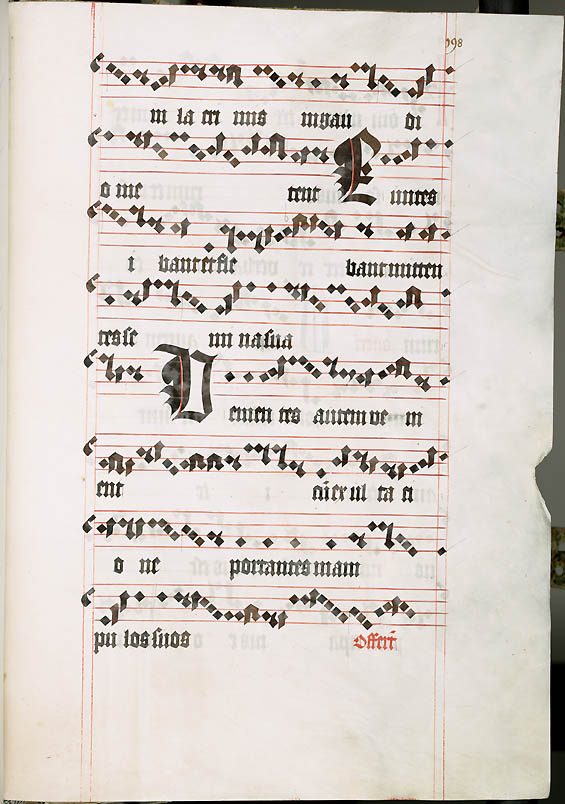 198
in la cri mis in gau di
o me tent E untes
i bant et fle bant mitten
tes se mi na sua
V enien tes autem ve ni
ent cū ex ul ta ti
o ne portantes mani
pu los suos Offert̄